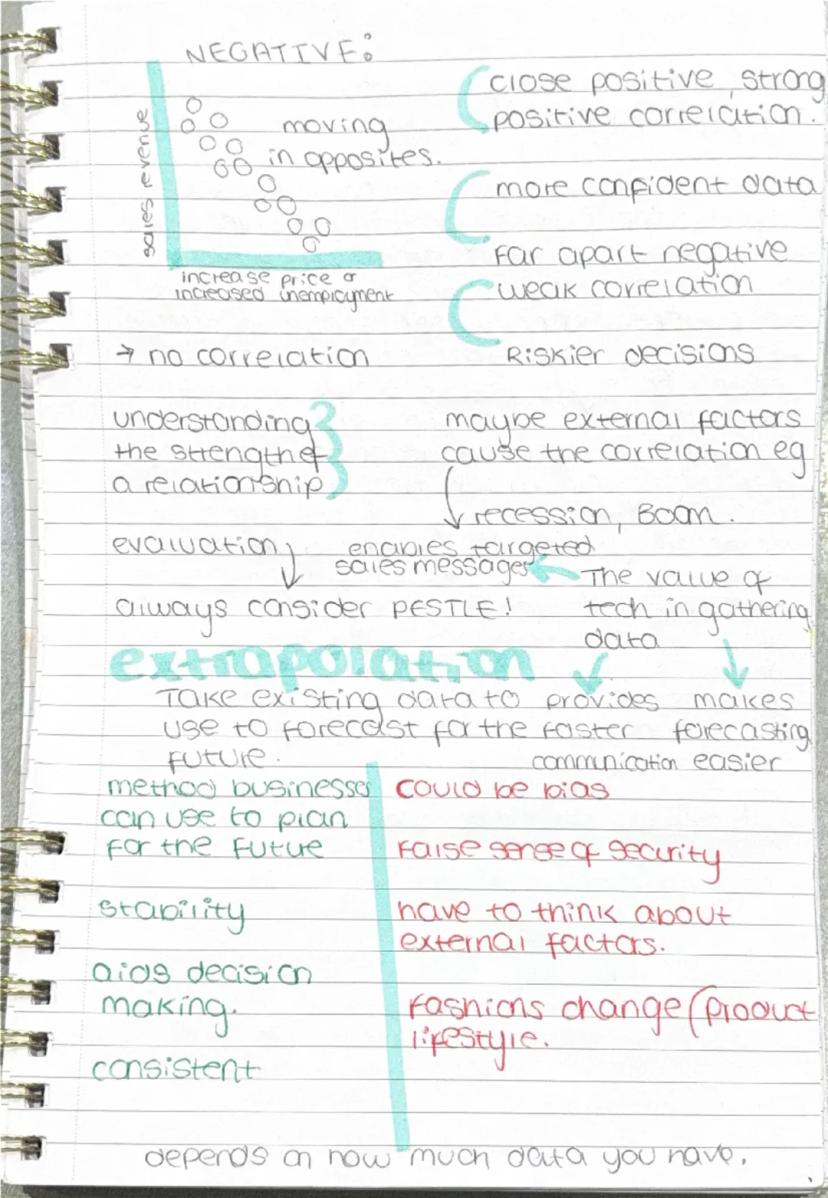 NEGATIVE:
sales revenue
moving
in opposites.
increase price or
increased unemployment
close positive, strong
positive correlation.
more confident data
far apart negative
weak correlation
Riskier decisions
→ no correlation
understanding
the strength of
a relationship
maybe external factors
cause the correlation eg
recession, Boom.
evaluation
always consider PESTLE!
enables targeted
sales messages
The value of
tech in gathering
data
provides
faster
communication
makes
forecasting
easier
extrapolation
Take existing data to
use to forecast for the
future.
method business
can use to plan
for the futue
stability
aids decision
making.
consistent
could be bias
false sense of security
have to think about
external factors.
fashions change (product
lifestyle.
depends on how much data you have.